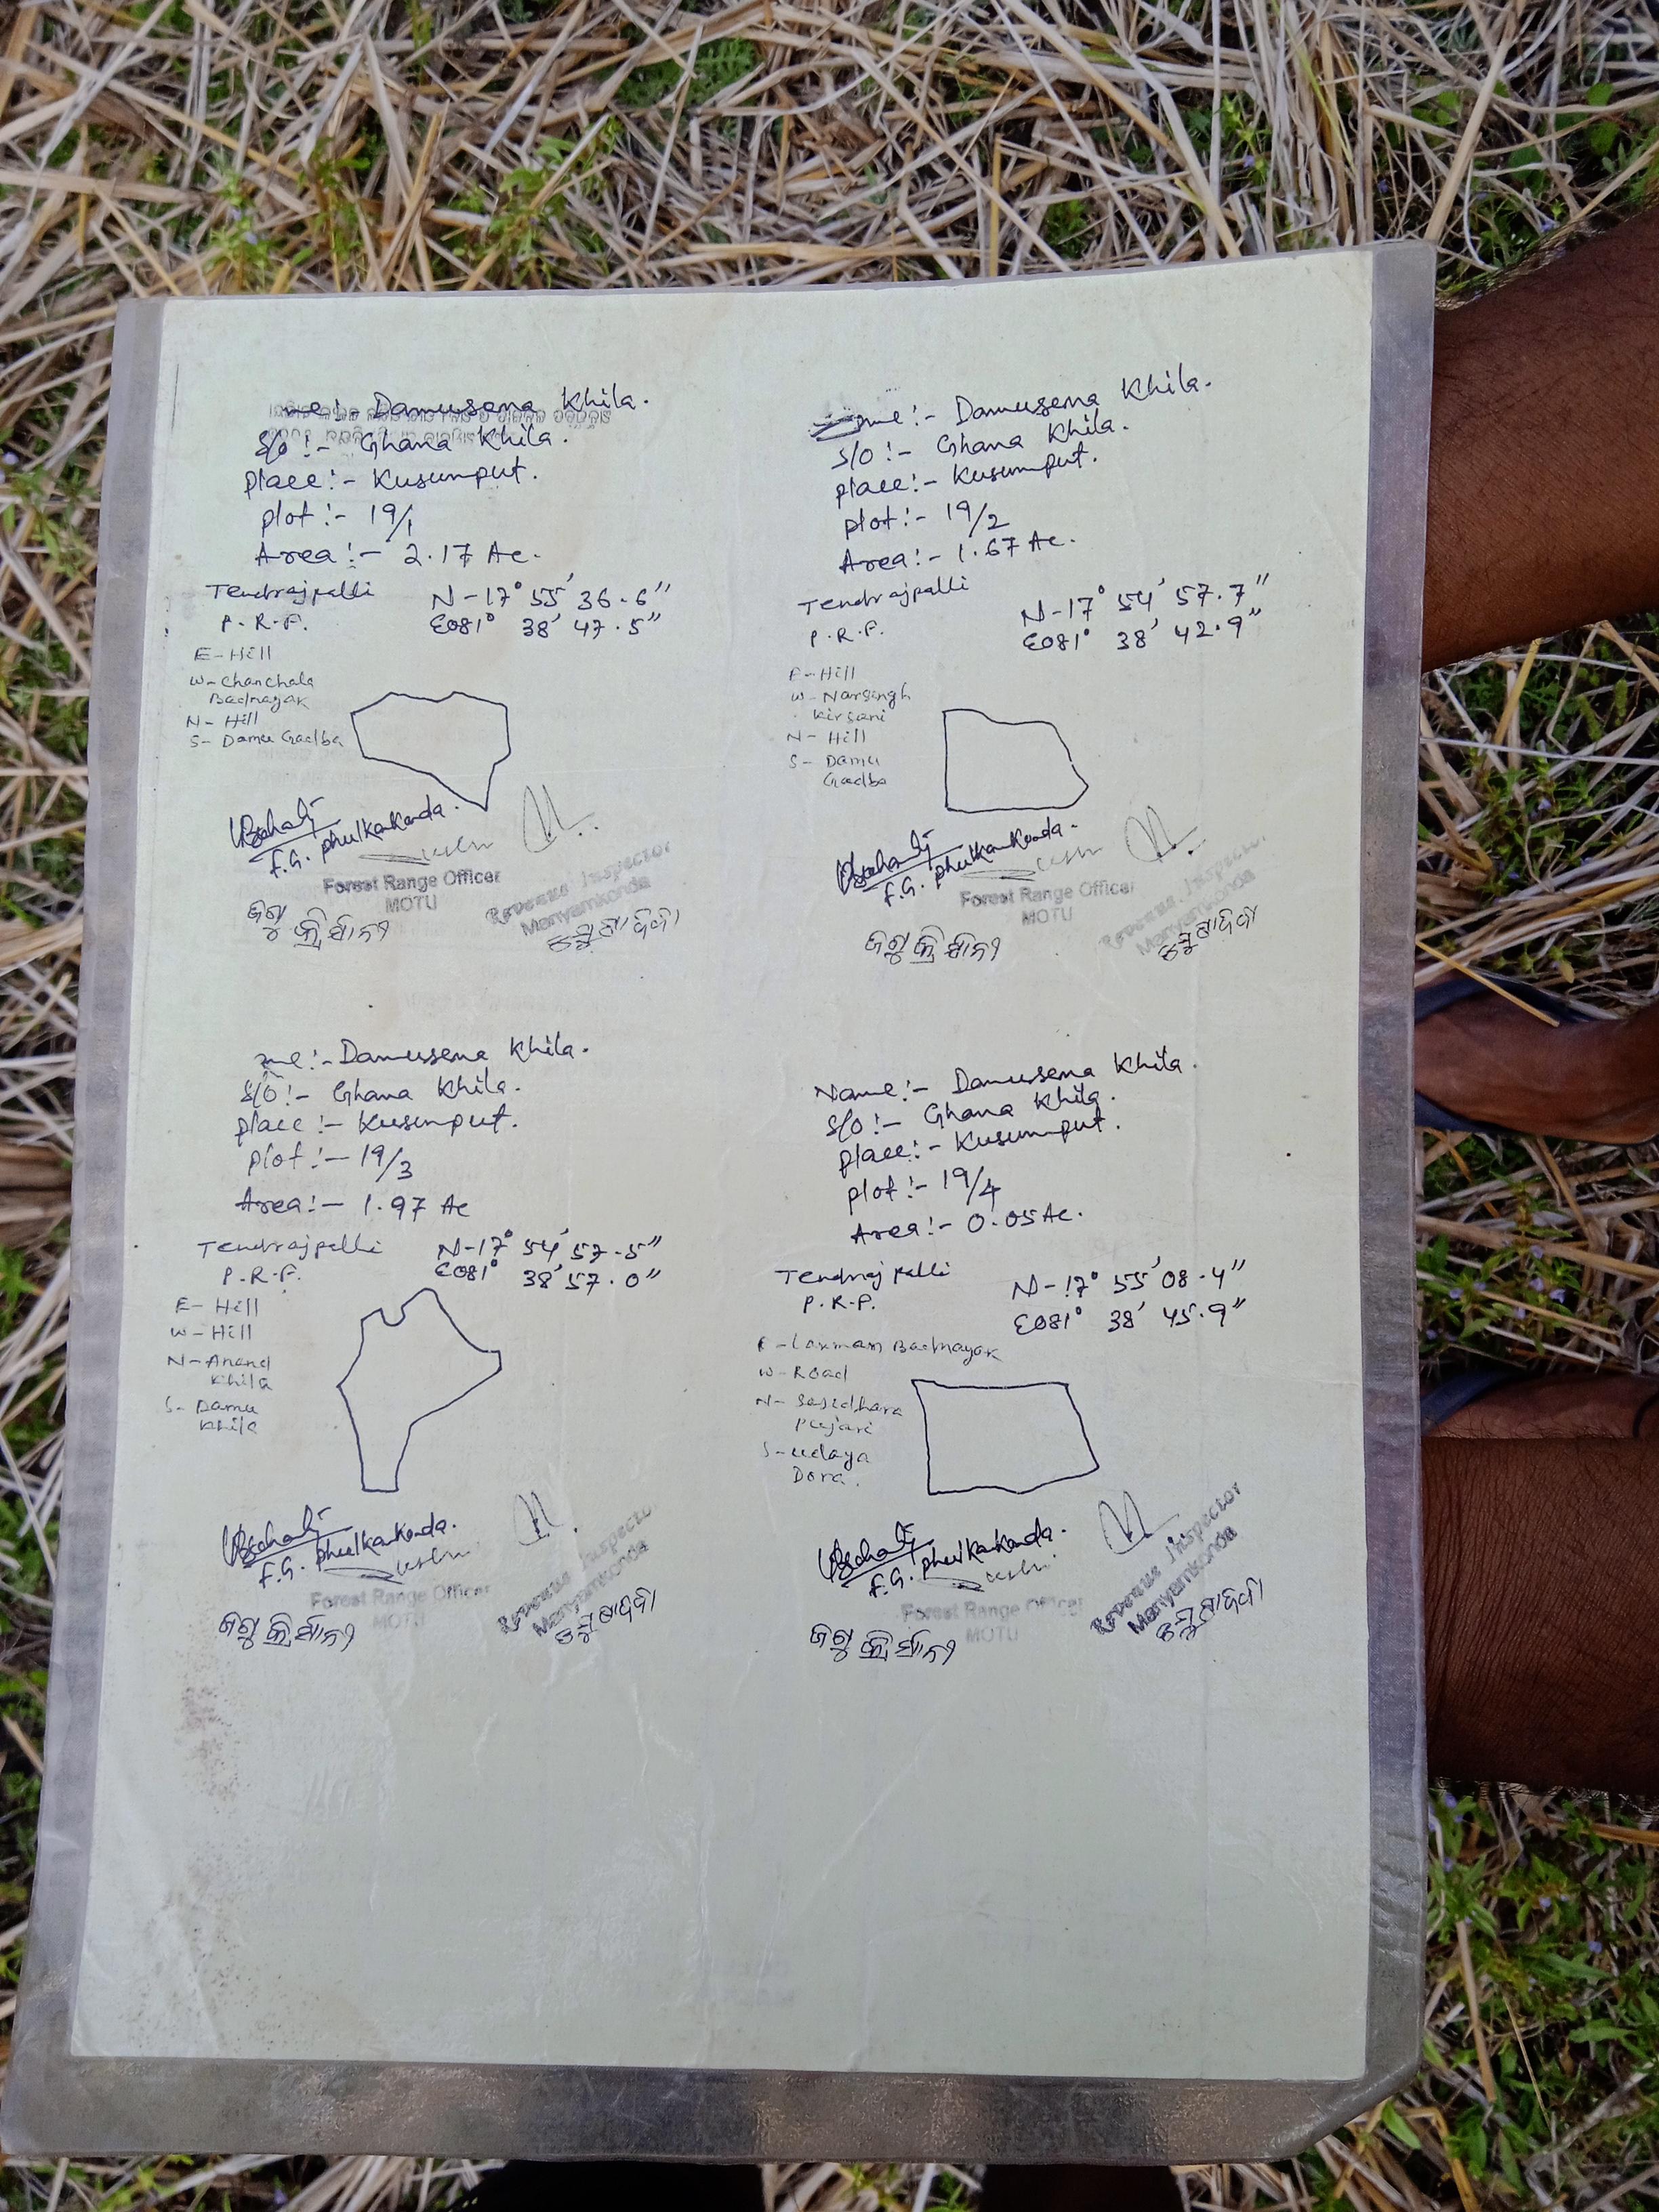 me:- Damusena Khila.
S/o:- Ghana Khila.
place:- Kusumput.
plot:- 19/1
Area:- 2.17 Ac.
Tendrajpalli
P.R.F.
N-17° 55' 36.6"
E081° 38' 47.5"
E-Hill
W-Chanchala
Badnayak
N- Hill
S- Damu Gadba
F.G. phulkankonda.
Forest Range Officer
MOTU
Revenue Inspector
Manyamkonda
ଜଗୁ କ୍ରିର୍ସାନୀ
me:- Damusena Khila.
S/o:- Ghana Khila.
place:- Kusumput.
plot:- 19/2
Area:- 1.67 Ac.
Tendrajpalli
P.R.F.
N-17° 54' 57.7"
E081° 38' 42.9"
E-Hill
W- Narsingh
Kirsani
N- Hill
S- Damu
Gadba
F.G. phulkankonda.
Forest Range Officer
MOTU
Revenue Inspector
Manyamkonda
ଜଗୁ କ୍ରିର୍ସାନୀ
me:- Damusena Khila.
S/o:- Ghana Khila.
place:- Kusumput.
plot:- 19/3
Area:- 1.97 Ac
Tendrajpalli
P.R.F.
N-17° 54' 57.5"
E081° 38' 57.0"
E- Hill
W- Hill
N- Anand
Khila
S- Damu
Khila
F.G. phulkankonda.
Forest Range Officer
MOTU
Revenue Inspector
Manyamkonda
ଜଗୁ କ୍ରିର୍ସାନୀ
Name:- Damusena Khila.
S/o:- Ghana Khila.
place:- Kusumput.
plot:- 19/4
Area:- 0.05 Ac.
Tendrajpalli
P.R.F.
N-17° 55' 08.4"
E081° 38' 45.9"
E- Laxman Badnayak
W- Road
N- Sasidhara
Pujari
S- Udaya
Dora.
F.G. phulkankonda.
Forest Range Officer
MOTU
Revenue Inspector
Manyamkonda
ଜଗୁ କ୍ରିର୍ସାନୀ